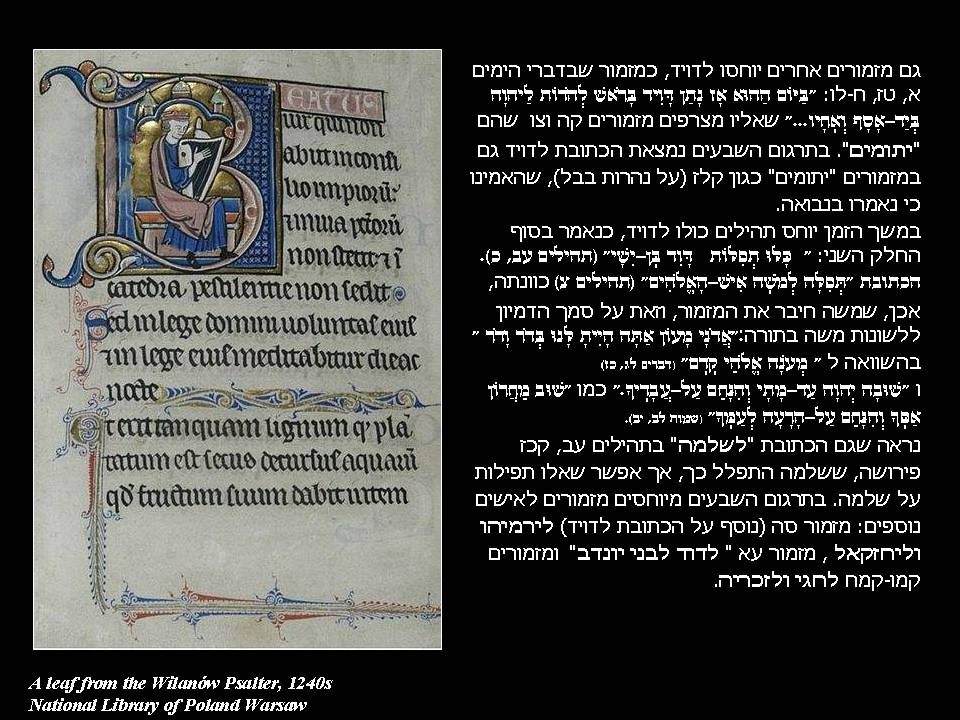 גם מזמורים אחרים יוחסו לדויד, כמזמור שבדברי הימים
א, טז, ח-לו: "בַּיּוֹם הַהוּא אָז נָתַן דָּוִיד בָּרֹאשׁ לְהֹדוֹת לַיהוָה
בְּיַד–אָסָף וְאֶחָיו..." שאליו מצרפים מזמורים קה וצו שהם
"יתומים". בתרגום השבעים נמצאת הכתובת לדויד גם
במזמורים "יתומים" כגון קלז (על נהרות בבל), שהאמינו
כי נאמרו בנבואה.
במשך הזמן יוחס תהילים כולו לדויד, כנאמר בסוף
החלק השני: " כָּלּוּ תְפִלּוֹת דָּוִד בֶּן–יִשָׁי" (תהילים עב, כ).
הכתובת "תְּפִלָּה לְמֹשֶׁה אִישׁ–הָאֱלֹהִים" (תהילים צ) כוונתה,
אכן, שמשה חיבר את המזמור, וזאת על סמך הדמיון
ללשונות משה בתורה:"אֲדֹנָי מָעוֹן אַתָּה הָיִיתָ לָּנוּ בְּדֹר וָדֹר "
בהשוואה ל " מְעֹנָה אֱלֹהֵי קֶדֶם" (דברים לג, כז)
ו "שׁוּבָה יְהוָה עַד–מָתָי וְהִנָּחֵם עַל–עֲבָדֶיךָ." כמו "שׁוּב מֵחֲרוֹן
אַפֶּךָ וְהִנָּחֵם עַל–הָרָעָה לְעַמֶּךָ" (שמות לב, יב).
נראה שגם הכתובת "לשלמה" בתהילים עב, קכז
פירושה, ששלמה התפלל כך, אך אפשר שאלו תפילות
על שלמה. בתרגום השבעים מיוחסים מזמורים לאישים
נוספים: מזמור סה (נוסף על הכתובת לדויד) לירמיהו
וליחזקאל , מזמור עא " לדוד לבני יונדב" ומזמורים
קמו-קמח לחגי ולזכריה.
BEATUS
uir qui non
abiit in consi
lio impiorum:
et in uia peccatorum
non stetit et in
catedra pestilentie non sedit
Sed in lege domini uoluntas eius
et in lege eius meditabitur die ac
nocte
Et erit tanquam lignum quod plan
tatum est secus decursus aquarum
quod fructum suum dabit in tem
A leaf from the Wilanów Psalter, 1240s
National Library of Poland Warsaw